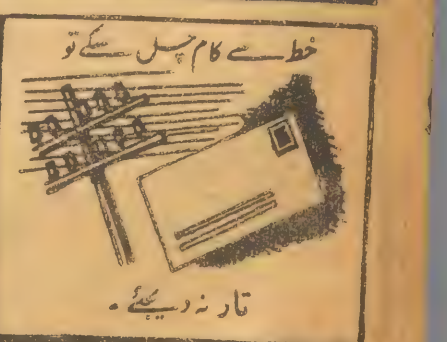 خط سے کام چل سکے تو
تار نہ دیجئے ۔